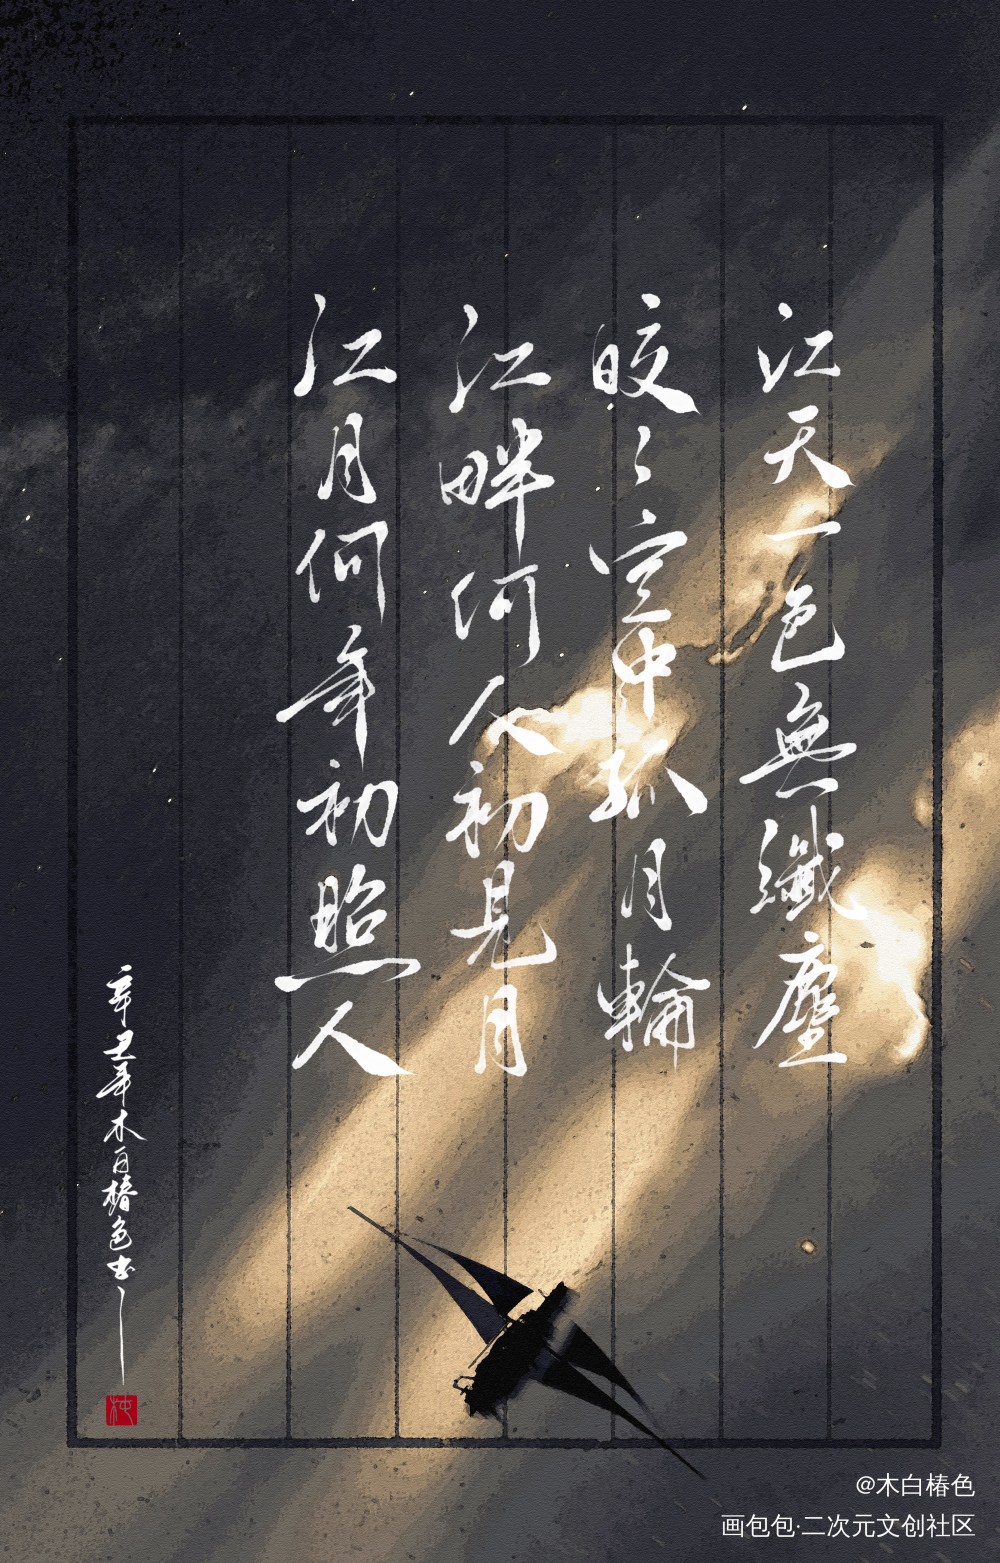 江天一色無纖塵
皎〻空中孤月輪
江畔何人初見月
江月何年初照人
辛丑年木白椿色书
@木白椿色
画包包·二次元文创社区